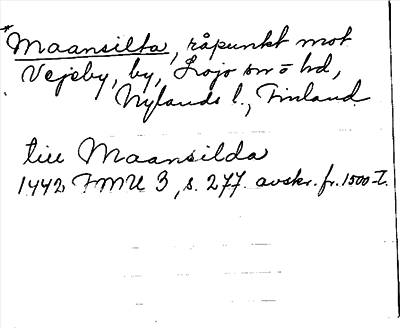 *Maansilta, råpunkt mot
Vejby, by, Lojo sn o hd,
Nylands l., Finland
till Maansilda
1442 FMU 3, s. 277. avskr. fr. 1500-t.